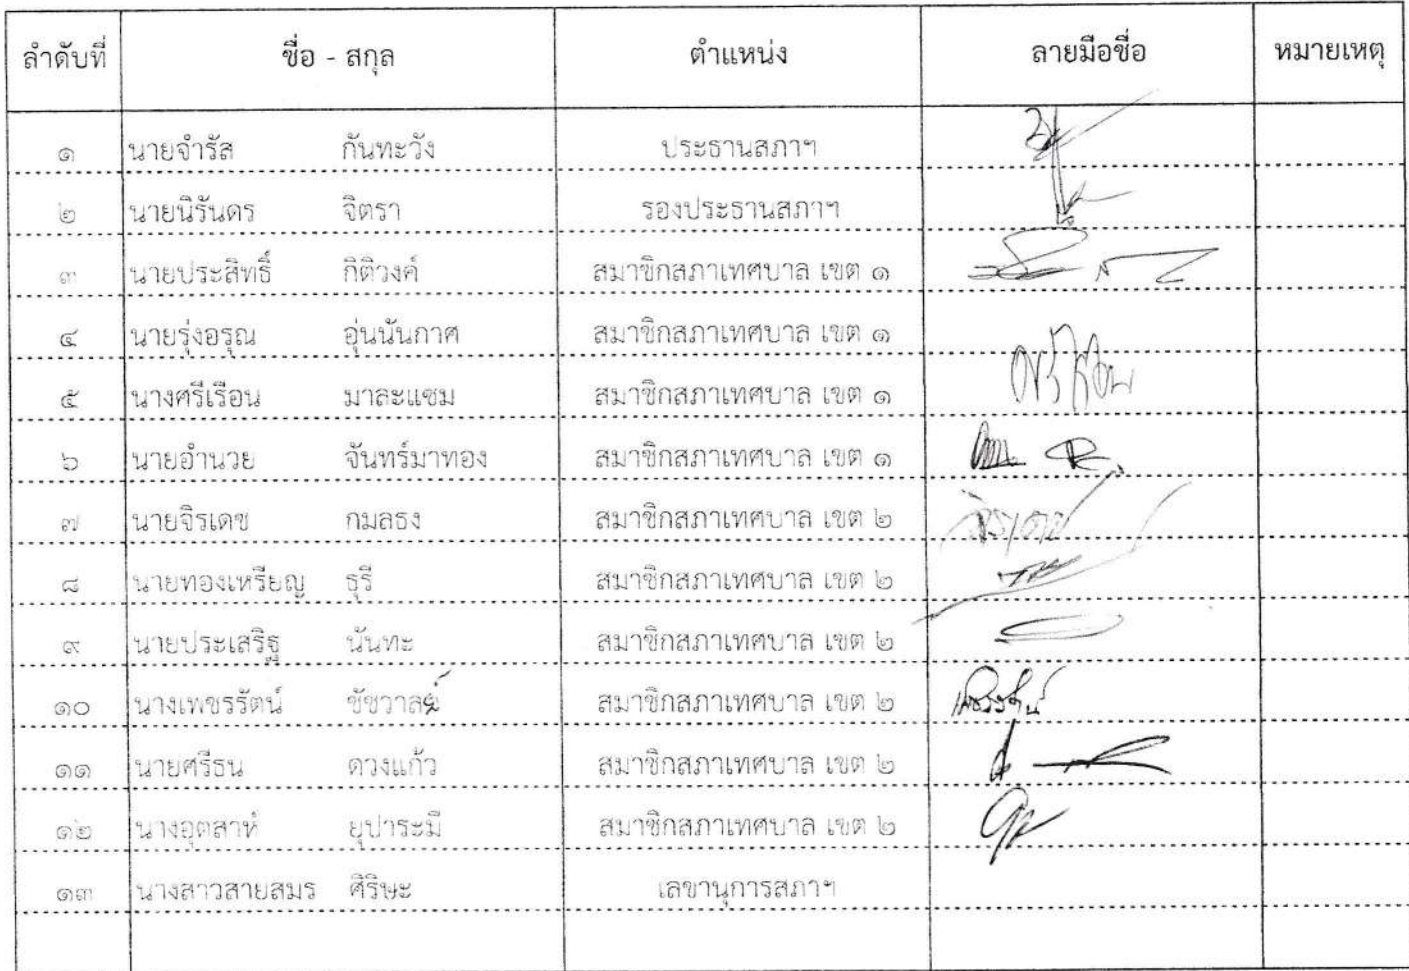 ลำดับที่ ชื่อ - สกุล ตำแหน่ง ลายมือชื่อ หมายเหตุ
๑ นายจำรัส กันทะวัง ประธานสภาฯ
๒ นายนิรันดร จิตรา รองประธานสภาฯ
๓ นายประสิทธิ์ กิติวงค์ สมาชิกสภาเทศบาล เขต ๑
๔ นายรุ่งอรุณ อุ่นนันกาศ สมาชิกสภาเทศบาล เขต ๑
๕ นางศรีเรือน มาละแซม สมาชิกสภาเทศบาล เขต ๑
๖ นายอำนวย จันทร์มาทอง สมาชิกสภาเทศบาล เขต ๑
๗ นายจิรเดช กมลธง สมาชิกสภาเทศบาล เขต ๒ จิรเดช
๘ นายทองเหรียญ ธุรี สมาชิกสภาเทศบาล เขต ๒
๙ นายประเสริฐ นันทะ สมาชิกสภาเทศบาล เขต ๒
๑๐ นางเพชรรัตน์ ชัชวาลย์ สมาชิกสภาเทศบาล เขต ๒ เพชรรัตน์
๑๑ นายศรีธน ดวงแก้ว สมาชิกสภาเทศบาล เขต ๒
๑๒ นางอุตสาห์ ยุปาระมี สมาชิกสภาเทศบาล เขต ๒
๑๓ นางสาวสายสมร ศิริษะ เลขานุการสภาฯ